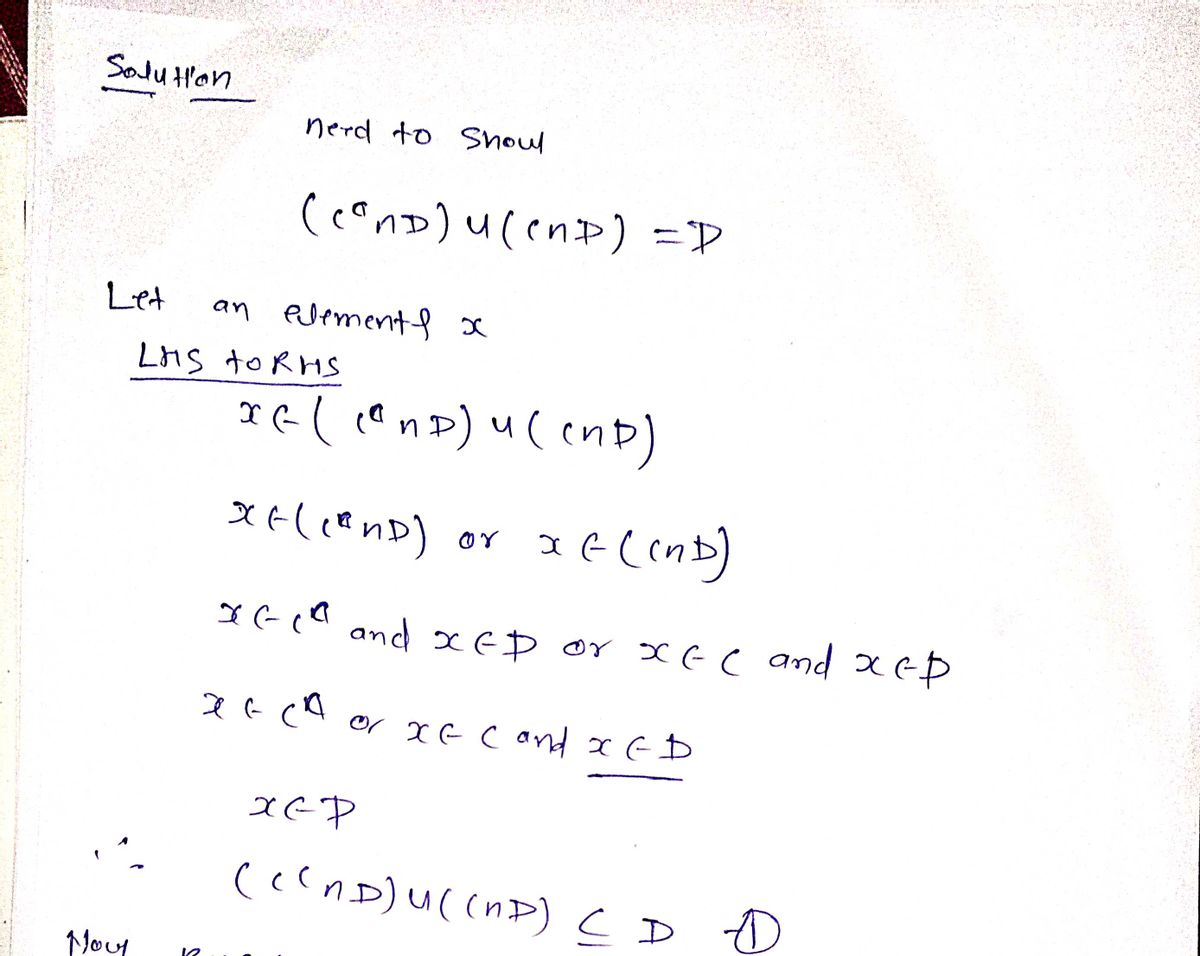 Solution
need to show
(C^c∩D)∪(C∩D) = D
Let an element x
LHS to RHS
x∈(C^c∩D)∪(C∩D)
x∈(C^c∩D) or x∈(C∩D)
x∈C^c and x∈D or x∈C and x∈D
x∈C^c or x∈C and x∈D
x∈D
∴ (C^c∩D)∪(C∩D) ⊆ D ①
Now